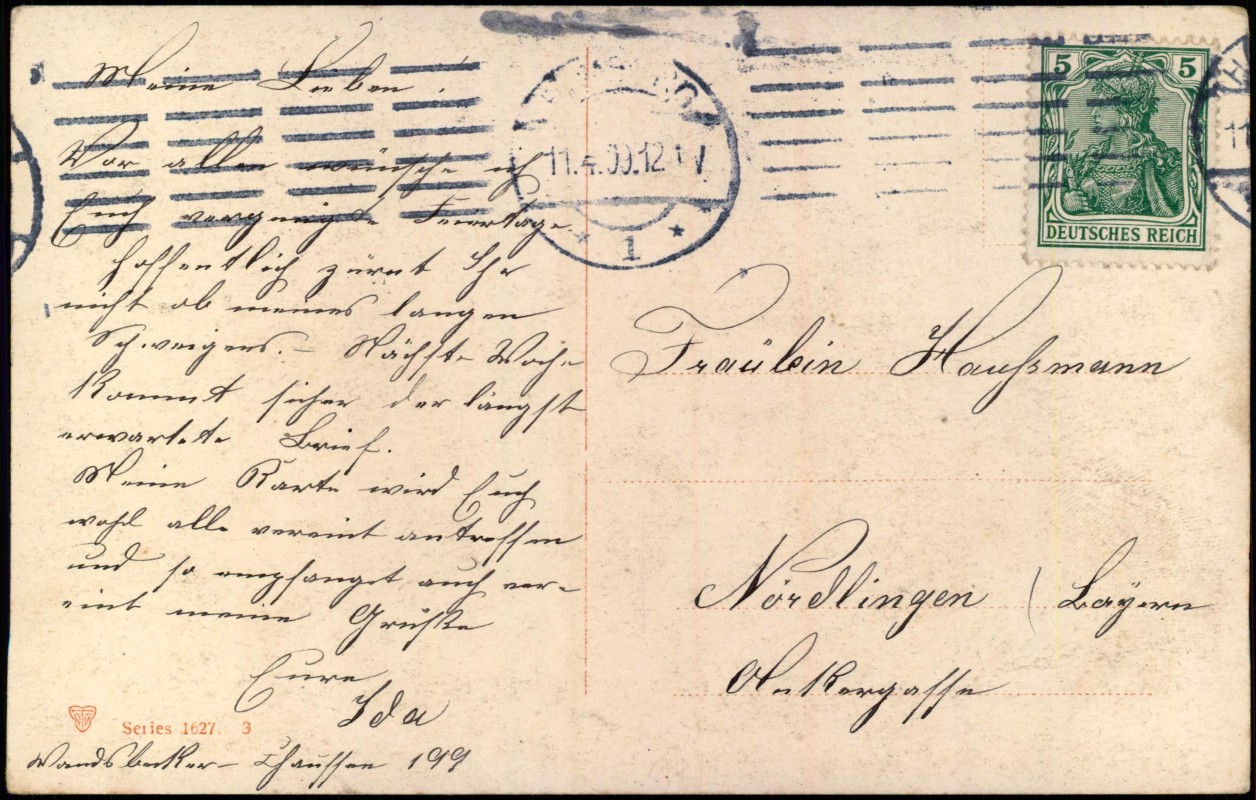 Meine Lieben!
Vor allem wünsche ich
Euch vergnügte Feiertage.
Hoffentlich zürnt Ihr
nicht ob meines langen
Schweigens. – Nächste Woche
kommt sicher der längst
erwartete Brief.
Meine Karte wird Euch
wohl alle vereint antreffen
und so empfanget auch ver-
eint meine Grüße
Eure
Ida
Wandsbecker-Chaussee 199
Series 1627. 3
11.4.09.12-1 V
* 1 *
5 5
DEUTSCHES REICH
Fräulein Haußmann
Nördlingen / Bayern
Ankergasse